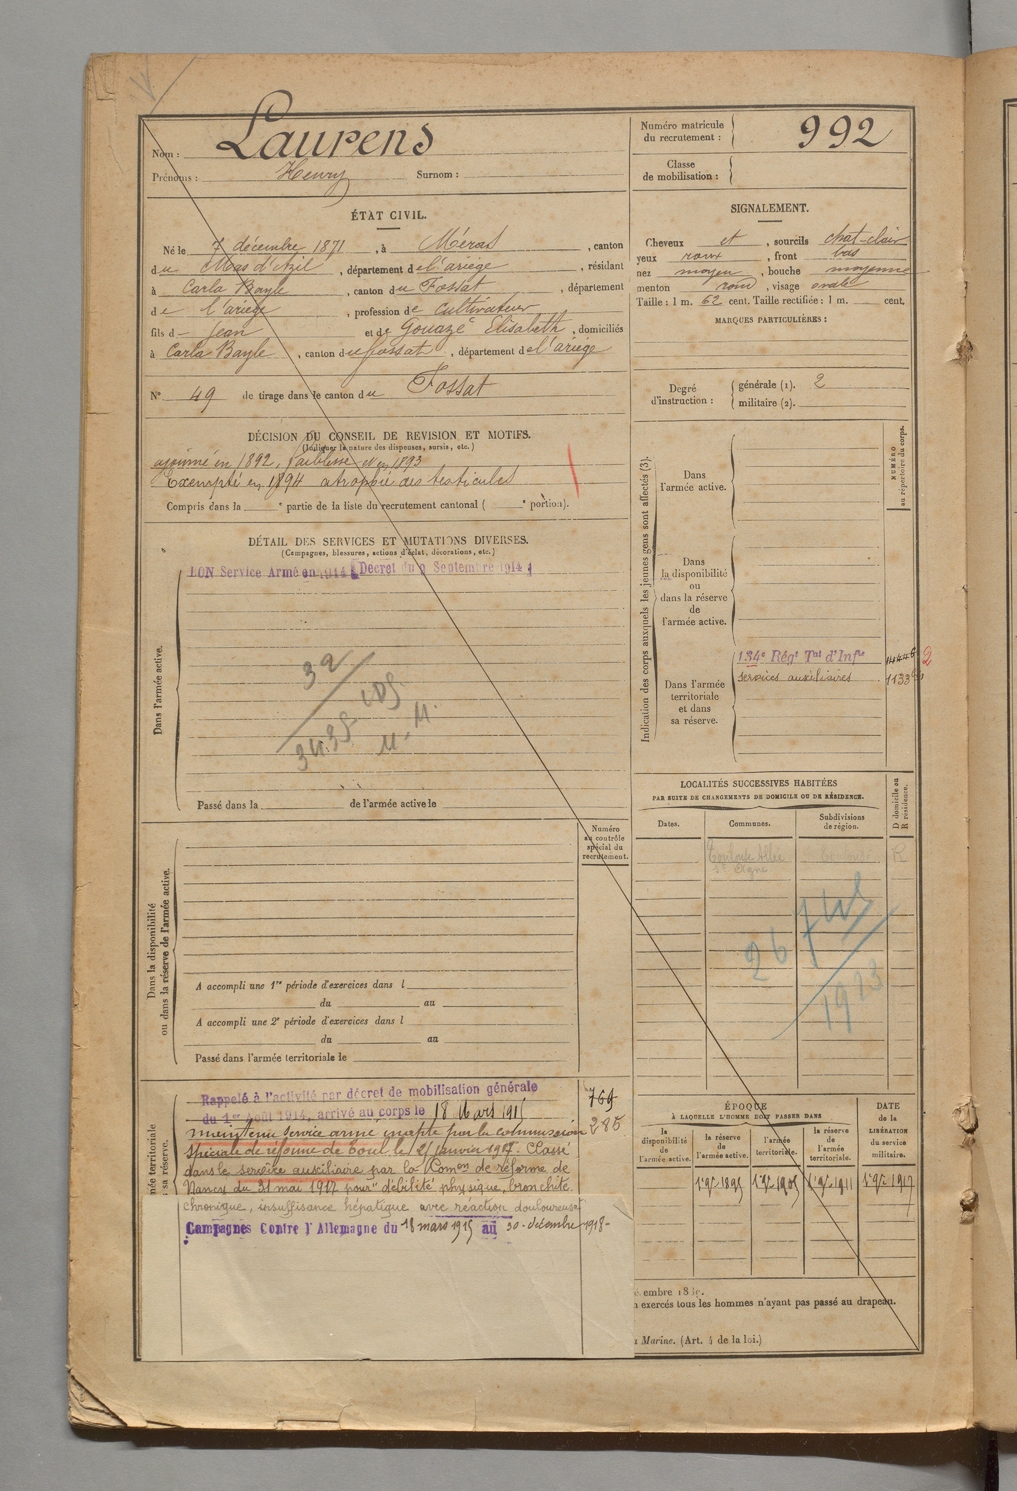 Nom : Laurens
Prénoms : Henry Surnom :
ÉTAT CIVIL.
Né le 7 décembre 1871, à Méras, canton
du Mas d'Azil, département de l'ariège, résidant
à Carla Bayle, canton du Fossat, département
de l'ariège, profession de cultivateur
fils d Jean et de Gouazé Elisabeth, domiciliés
à Carla Bayle, canton du fossat, département de l'ariège
N° 49 de tirage dans le canton du Fossat
DÉCISION DU CONSEIL DE REVISION ET MOTIFS.
(Indiquer la nature des dispenses, sursis, etc.)
ajourné en 1892, faiblesse et en 1893
Exempté en 1894 atrophie des testicules
Compris dans la e partie de la liste du recrutement cantonal ( e portion).
DÉTAIL DES SERVICES ET MUTATIONS DIVERSES.
(Campagnes, blessures, actions d'éclat, décorations, etc.)
BON Service Armé en 1914 (Décret du 9 Septembre 1914)
Dans l'armée active.
32
Passé dans la de l'armée active le
Numéro
au contrôle
spécial du
recrutement.
Dans la disponibilité
ou dans la réserve de l'armée active.
A accompli une 1re période d'exercices dans l
du au
A accompli une 2e période d'exercices dans l
du au
Passé dans l'armée territoriale le
née territoriale
sa réserve.
Rappelé à l'activité par décret de mobilisation générale
du 1er Août 1914, arrivé au corps le 18 Mars 1915
769
maintenu service armé inapte par la commission
285
spéciale de réforme de Toul le 21 janvier 1917. Classé
dans le service auxiliaire par la Comon de réforme de
Nancy du 31 mai 1917 pour "débilité physique, bronchite
chronique, insuffisance hépatique avec réaction douloureuse
Campagnes Contre l'Allemagne du 18 mars 1915 au 30 décembre 1918-
Numéro matricule
du recrutement : 992
Classe
de mobilisation :
SIGNALEMENT.
Cheveux et, sourcils chat-clair
yeux roux, front bas
nez moyen, bouche moyenne
menton rond, visage ovale
Taille : 1 m. 62 cent. Taille rectifiée : 1 m. cent.
MARQUES PARTICULIÈRES :
Degré
d'instruction :
générale (1). 2
militaire (2).
Indication des corps auxquels les jeunes gens sont affectés (3).
NUMÉRO
au répertoire du corps.
Dans
l'armée active.
Dans
la disponibilité
ou
dans la réserve
de
l'armée active.
Dans l'armée
territoriale
et dans
sa réserve.
134e Régt Tal d'Infie
services auxiliaires
2
LOCALITÉS SUCCESSIVES HABITÉES
PAR SUITE DE CHANGEMENTS DE DOMICILE OU DE RÉSIDENCE.
D domicile ou
R résidence.
Dates.
Communes.
Subdivisions
de région.
Toulouse Toulouse R
1923
ÉPOQUE
À LAQUELLE L'HOMME DOIT PASSER DANS
DATE
de la
LIBÉRATION
du service
militaire.
la
disponibilité
de
l'armée active.
la réserve
de
l'armée active.
l'armée
territoriale.
la réserve
de
l'armée
territoriale.
1er 9bre 1895 1er 9bre 1905 1er 9bre 1911 1er 9bre 1917
exercés tous les hommes n'ayant pas passé au drapeau.
Marine. (Art. 4 de la loi.)